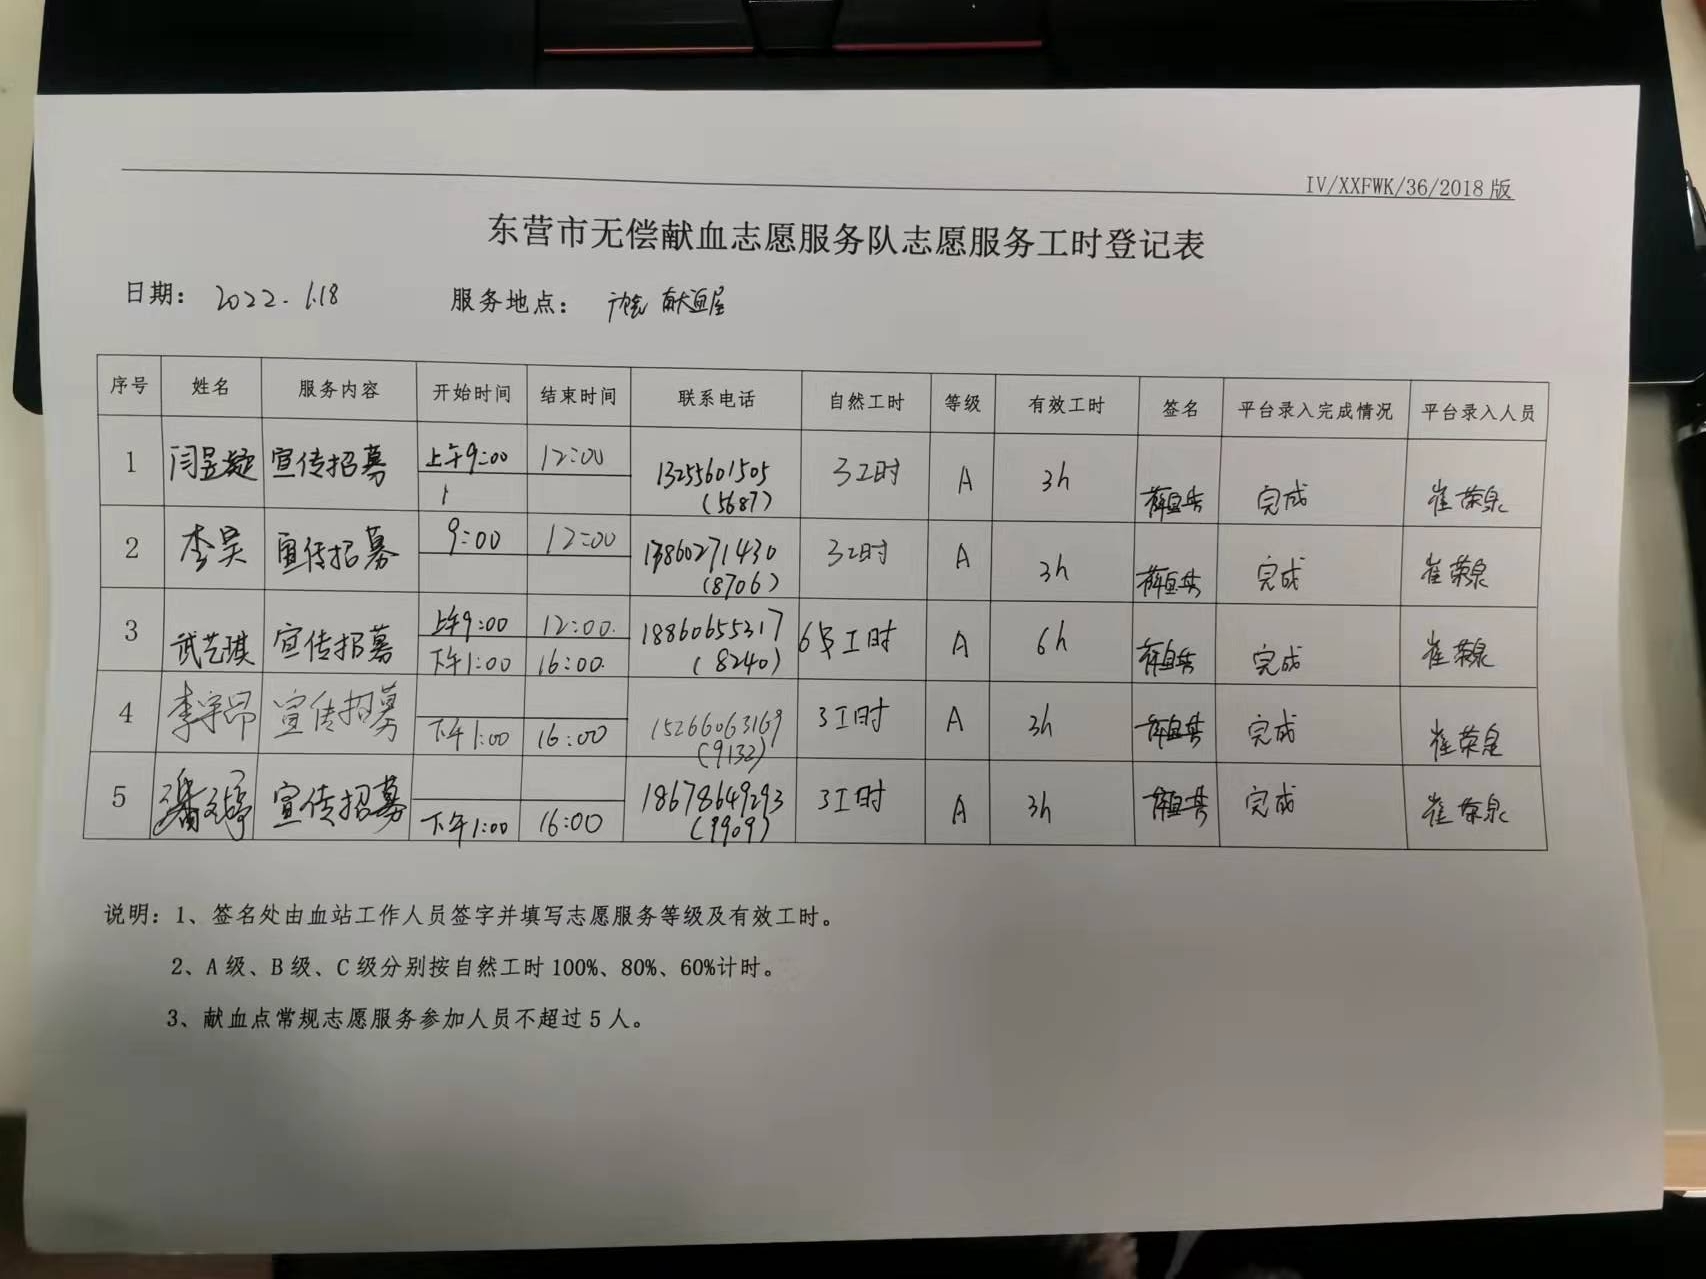 IV/XXFWK/36/2018版
东营市无偿献血志愿服务队志愿服务工时登记表
日期： 2022.1.18 服务地点： 献血屋
序号 姓名 服务内容 开始时间 结束时间 联系电话 自然工时 等级 有效工时 签名 平台录入完成情况 平台录入人员
1 闫昱凝 宣传招募 上午9:00 12:00 13255601505 (5687) 3工时 A 3h 完成 崔荣泉
2 李昊 宣传招募 9:00 12:00 (8706) 3工时 A 3h 完成 崔荣泉
3 武艺琪 宣传招募 上午9:00 12:00 18860655317 (8240) 6 工时 A 6h 完成 崔荣泉
下午1:00 16:00
4 李宇昂 宣传招募 下午1:00 16:00 15266063169 (9132) 3工时 A 3h 完成 崔荣泉
5 宣传招募 下午1:00 16:00 18678649293 (9909) 3工时 A 3h 完成 崔荣泉
说明：1、签名处由血站工作人员签字并填写志愿服务等级及有效工时。
2、A级、B级、C级分别按自然工时100%、80%、60%计时。
3、献血点常规志愿服务参加人员不超过5人。